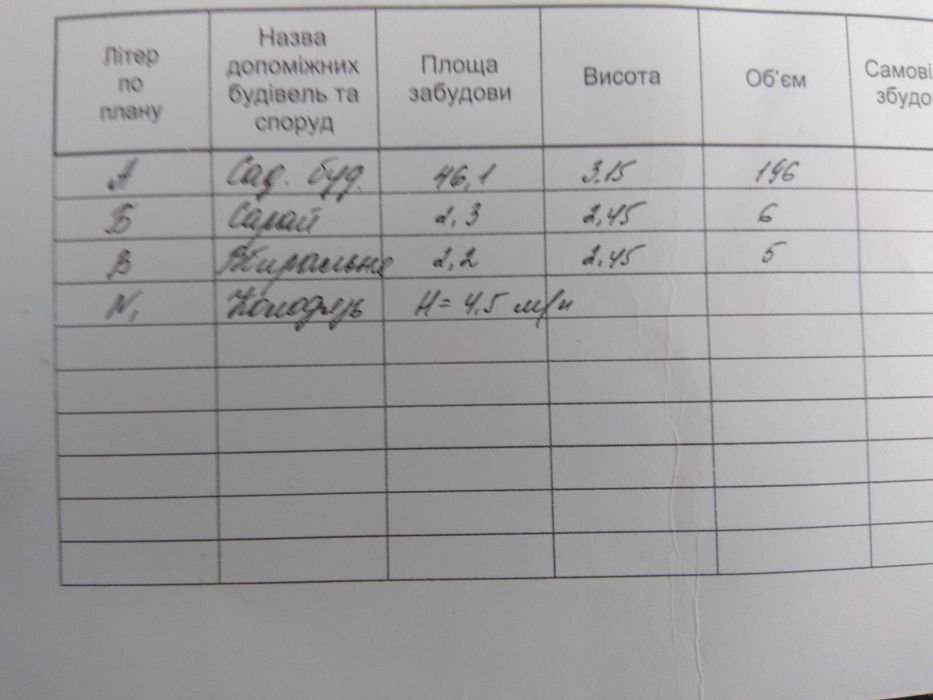 Літер по плану
Назва допоміжних будівель та споруд
Площа забудови
Висота
Об'єм
Самові
збудо
А Сад. буд. 46,1 3.15 146
Б Сарай 2,3 2,45 6
В Вбиральня 2,2 2,45 5
N1 Колодязь H= 4.5 м/п